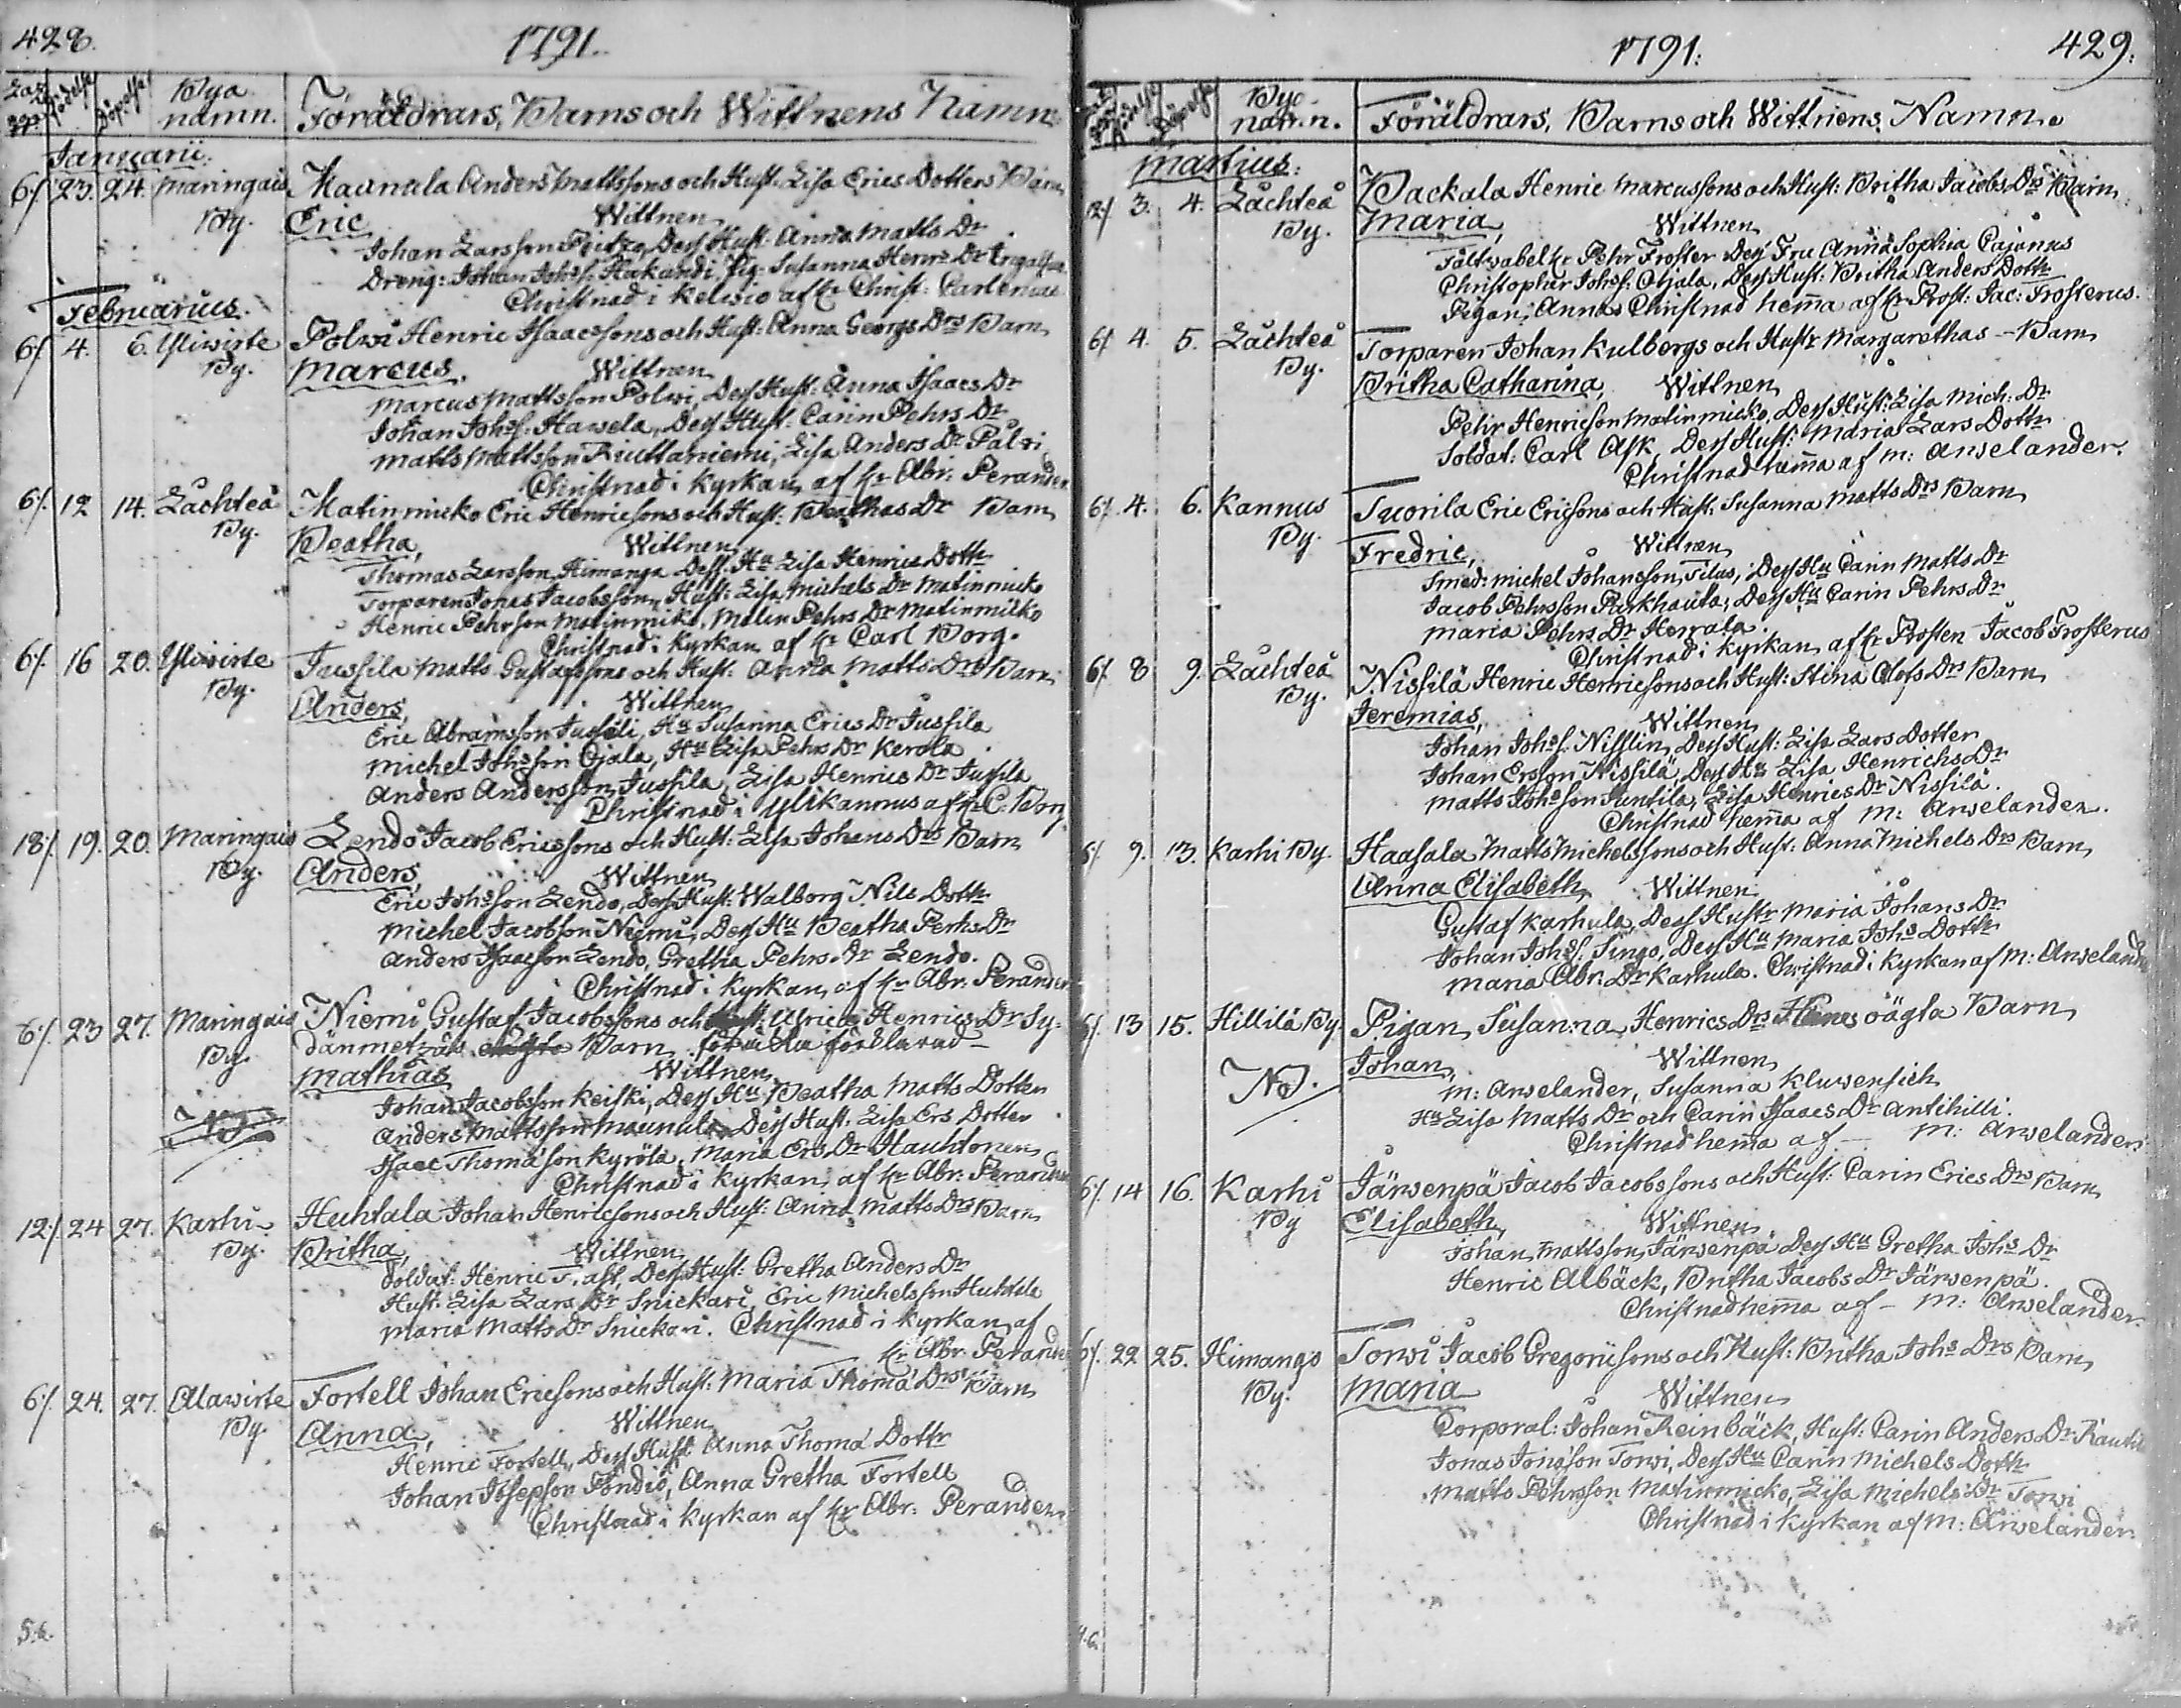 428.
1791.
Födelse Döpelse Bya namn. Föräldrars, Barns och Wittnens Namn
Januarii.
6/. 23. 24. Maringais Maunula Anders Mattssons och Hust. Lisa Erics Dotters Barn
By. Eric Wittnen
Johan Larsson Dess Hust. Anna Matts Dr
Dreng: Johan Johss: Pig: Susanna Henrs Dr
Christnad i Kelwio af Hr Christ: Carlenius
Februarius.
6/. 4. 6. Yliwirte Polwi Henric Isaacssons och Hust: Anna Georgs Drs Barn
By. Marcus. Wittnen
Marcus Mattsson Polwi, Dess Hust: Anna Isaacs Dr
Johan Johss: Hawela, Dess Hust: Carin Pehrs Dr
Matts Mattsson Riuttaniemi, Lisa Anders Dr Palwi
Christnad i Kyrkan af Hr Abr: Perander
6/. 12 14. Låchteå Matinmicko Eric Henricsons och Hust: Dr Barn
By. Beatha, Wittnen
Thomas Larsson Himanga Dess Hu Lisa Henrics Dottr
Torparen Jonas Jacobsson, Hust: Lisa Michels Dr Matinmicko
Henric Pehrson Matinmiko, Malin Pehrs Dr Matinmicko
Christnad i Kyrkan af Hr Carl Borg.
6/. 16 20. Yliwirte Jussila Matts Gustafssons och Hust: Anna Matts Drs Barn
By. Anders, Wittnen
Eric Abramsson Jussili, Hu Susanna Erics Dr Jussila
Michel Johsson Ojala, Hu Lisa Pehrs Dr Kerola
Anders Andersson Jussila, Lisa Henrics Dr Jussila
Christnad i Ylikannus af Hr C: Borg
18/. 19. 20. Maringais Lendo Jacob Ericssons och Hust: Lisa Johans Drs Barn
By. Anders Wittnen
Eric Johsson Lendo, Dess Hust: Walborg Nils Dottr
Michel Jacobson Niemi, Dess Hu Beatha Perhs Dr
Anders Isaacson Lendo, Gretha Pehrs Dr Lendo.
Christnad i Kyrkan af Hr Abr: Perander
6/. 23 27. Maringais Niemi Gustaf Jacobssons och Ulrica Henrics Dr
By. Barn
Mathias Wittnen
Johan Jacobsson Keiski, Dess Hu Beatha Matts Dotter
NB Anders Mattsson Maunula Dess Hust: Lisa Ers Dotter
Isaac Thomason Kyrölä, Maria Ers Dr Hauhtonen
Christnad i Kyrkan af Hr Abr: Perander
12/. 24 27. Karhi Huhtala Johan Henricsons och Hust: Anna Matts Drs Barn
By. Britha, Wittnen
Soldat: Henric Dess Hust: Gretha Anders Dr
Hust: Lisa Lars Dr Snickari, Eric Michelsson Huhtala
Maria Matts Dr Snickari. Christnad i Kyrkan af
Hr Abr: Perander
6/. 24. 27. Alawirte Fortell Johan Ericsons och Hust: Maria Thoma Drs Barn
By. Anna, Wittnen
Henric Fortell, Dess Hust Anna Thoma Dottr
Johan Josepson Pondio, Anna Gretha Fortell
Christnad i Kyrkan af Hr Abr: Perander
5:6.
1791.
429.
Födelse Döpelse Bya namn. Föräldrars, Barns och Wittnens Namn.
Martius:
12/. 3. 4. Låchteå Backala Henric Marcussons och Hust: Britha Jacobs Drs Barn
By. Maria, Wittnen
Pehr Froster Dess Fru Anna Sophia Cajanus
Christopher Johss: Ojala, Dess Hust: Britha Anders Dottr
Pigan: Anna Christnad hemma af Hr Prost: Jac: Frosterus.
6/. 4. 5. Låchteå Torparen Johan Kulbergs och Hustr Margarethas - Barn
By. Britha Catharina, Wittnen
Pehr Henricson Matinmicko, Dess Hust: Lisa Mich: Dr
Soldat: Carl Ask, Dess Hust: Maria Lars Dottr
Christnad hemma af M: Arwelander.
6/. 4. 6. Kannus Tuorila Eric Ericsons och Hust: Susanna Matts Drs Barn
By. Fredric, Wittnen
Smed: Michel Johansson Silas, Dess Hu Carin Matts Dr
Jacob Pehrsson Purkhauta, Dess Hu Carin Pehrs Dr
Maria Pehrs Dr Herrala.
Christnad i Kyrkan af Hr Prosten Jacob Frosterus
6/. 8 9. Låchteå Nissilä Henric Henricsons och Hust: Stina Olofs Drs Barn
By. Jeremias, Wittnen
Johan Johss: Nisslin, Dess Hust: Lisa Lars Dotter
Johan Ersson Nissilä, Dess Hu Lisa Henrichs Dr
Matts Johsson Puntila, Lisa Henrics Dr Nissilä.
Christnad hemma af M: Arwelander.
6/. 9. 13. Karhi By. Haasala Matts Michelssons och Hust: Anna Michels Drs Barn
Anna Elisabeth, Wittnen
Gustaf Karhula, Dess Hustr Maria Johans Dr
Johan Johss: Singo, Dess Hu Maria Johs Dottr
Maria Abr: Dr Karhula. Christnad i Kyrkan af M: Arwelander
6/. 13 15. Hillilä By Pigan Susanna Henrics Drs oägta Barn
Johan, Wittnen
NB. M: Arwelander, Susanna Kluwensich
Hu Lisa Matts Dr och Carin Isaacs Dr Antihilli.
Christnad hemma af - M: Arwelander
6/. 14 16. Karhi Järwenpä Jacob Jacobssons och Hust: Carin Erics Drs Barn
By Elisabeth, Wittnen
Johan Mattsson Järwenpä Dess Hu Gretha Johs Dr
Henric Albäck, Britha Jacobs Dr Järwenpä.
Christnad hemma af - M: Arwelander.
6/. 22 25. Himango Torwi Jacob Gregoriisons och Hust: Britha Johs Drs Barn
By. Maria Wittnen
Corporal: Johan Reinbäck, Hust: Carin Anders Dr
Jonas Jonasson Torwi, Dess Hu Carin Michels Dottr
Matts Pehrsson Matinmicko, Lisa Michels Dr Torwi
Christnad i Kyrkan af M: Arwelander.